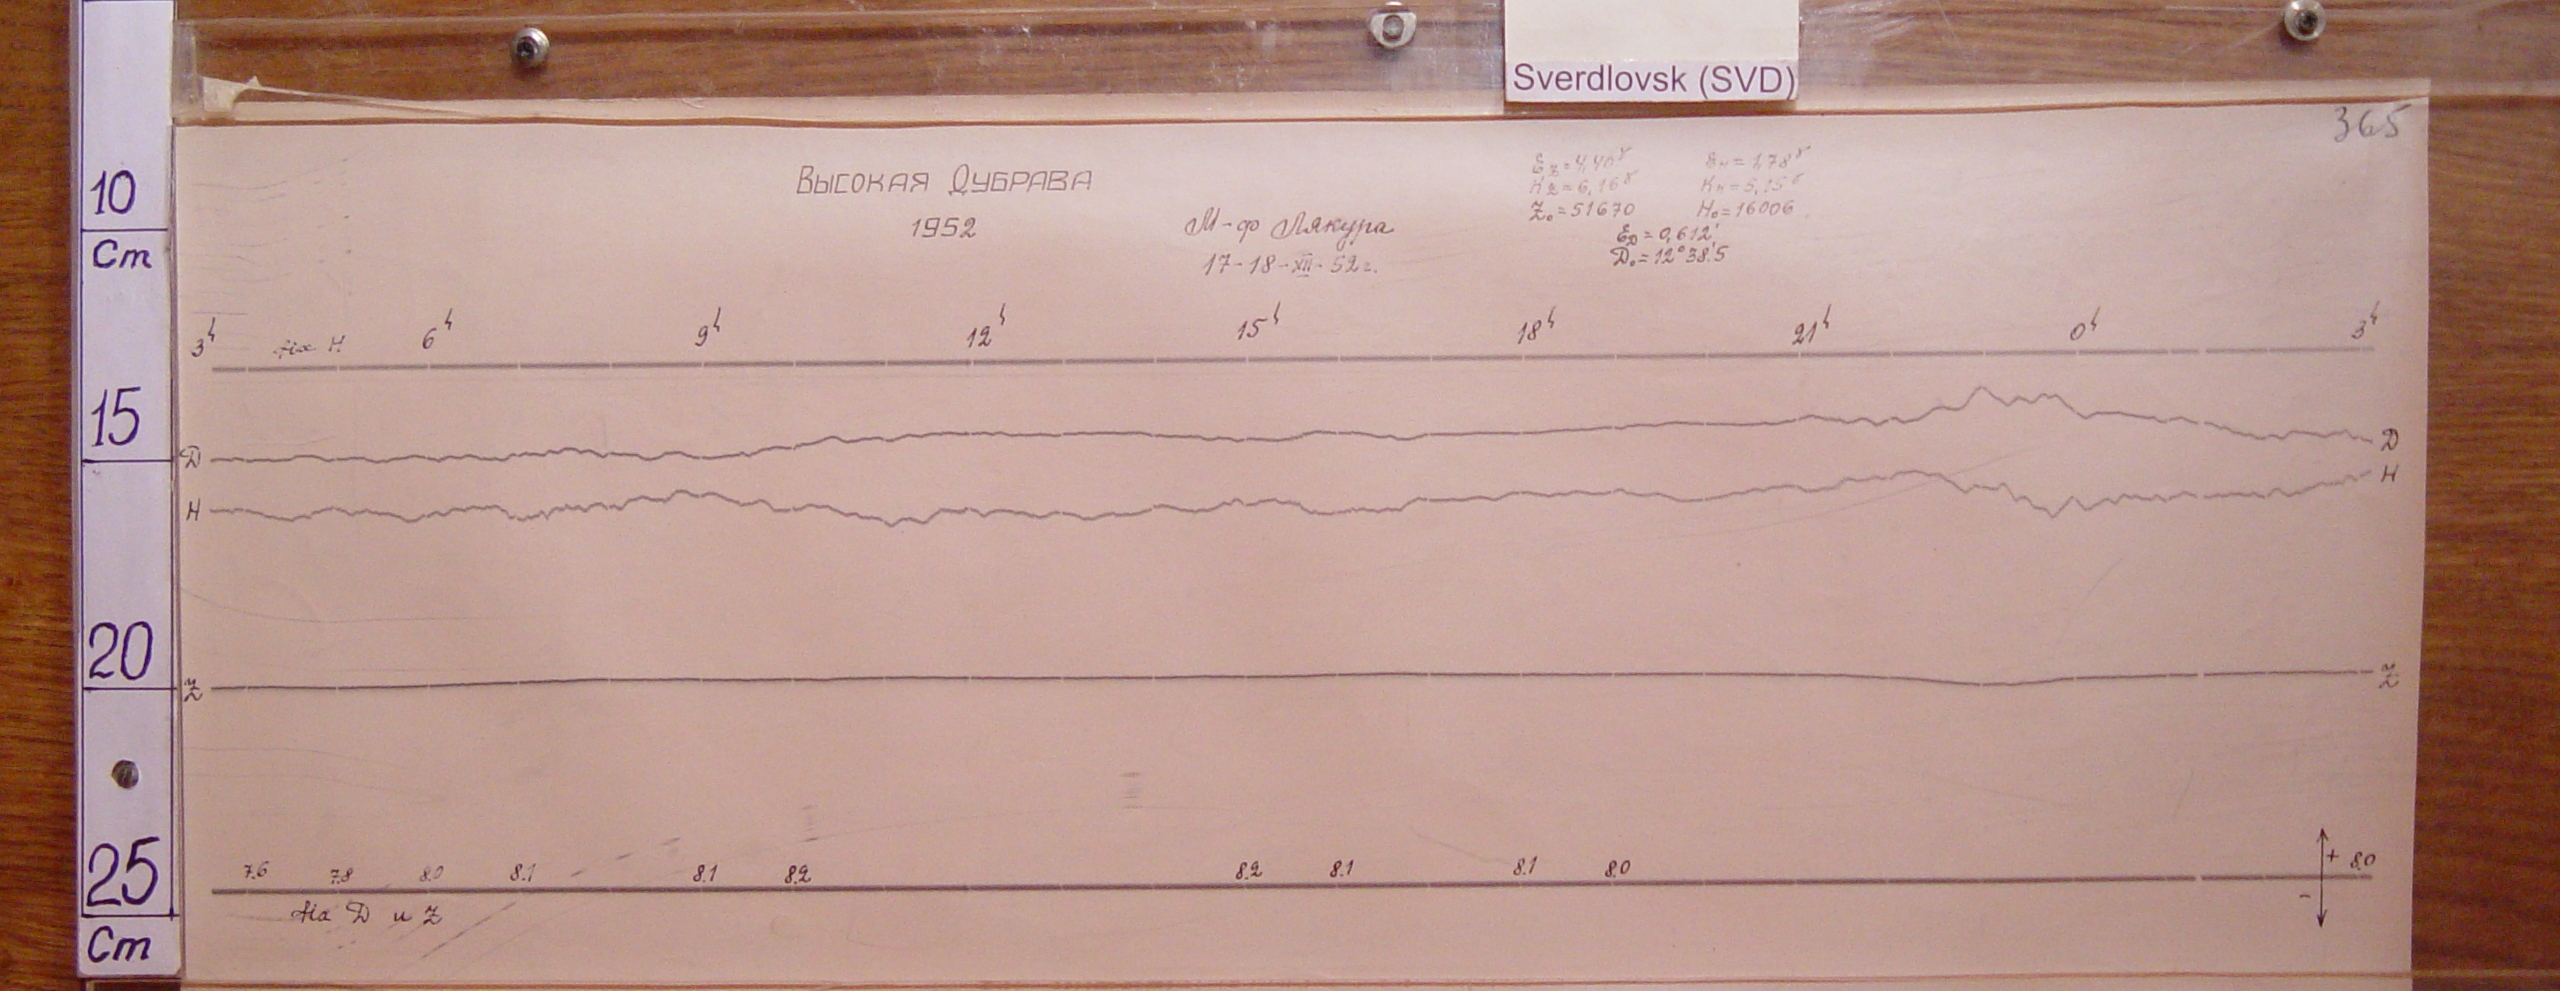 Sverdlovsk (SVD)
365
Высокая Дубрава
1952
М-ф Лякура
17-18-XII-52г.
Ez=4,40γ Eн=1,78γ
Kz=6,16γ Kн=5,15γ
Z₀=51670 H₀=16006
E_D=0,612'
D₀=12°38'.5
10
Cm
15
20
25
Cm
3h 6h 9h 12h 15h 18h 21h 0h 3h
D D
H H
Z Z
7.6 7.8 8.0 8.1 8.1 8.2 8.2 8.1 8.1 8.0 8.0
+
-
D и Z